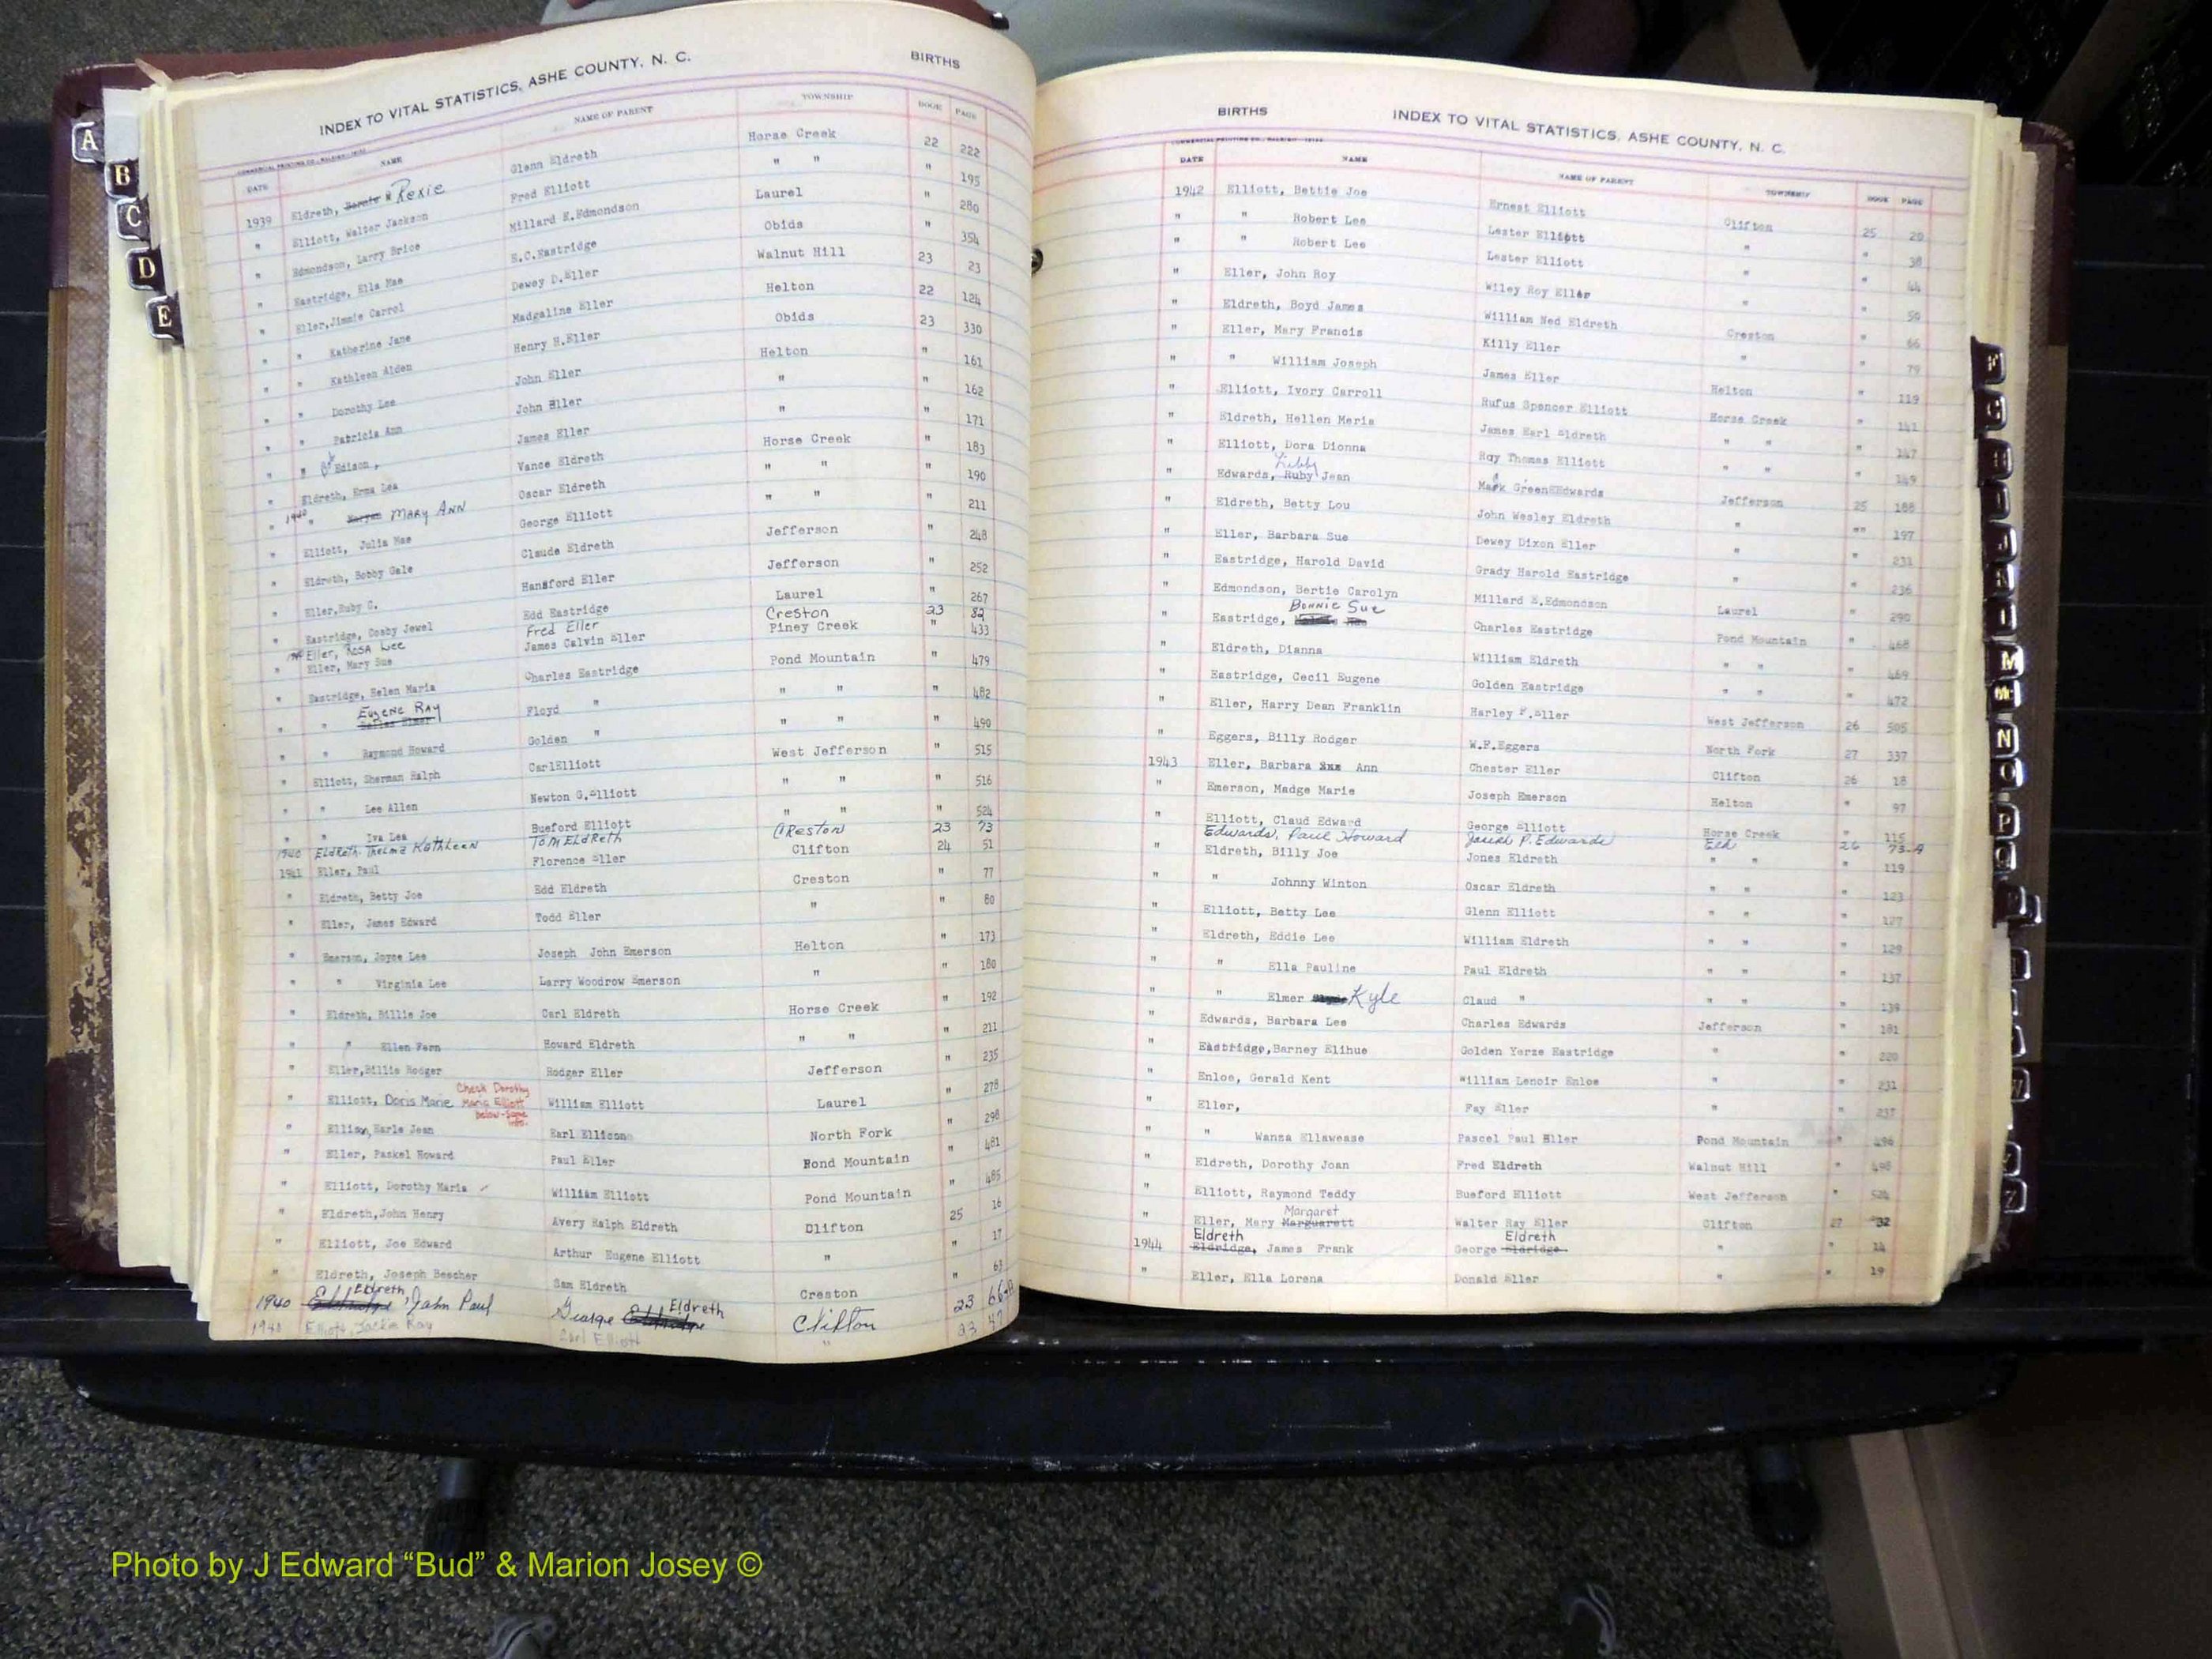 INDEX TO VITAL STATISTICS, ASHE COUNTY, N. C. BIRTHS
DATE NAME NAME OF PARENT TOWNSHIP BOOK PAGE
1939 Eldreth, Rexie Glenn Eldreth Horse Creek 22 222
" Elliott, Walter Jackson Fred Elliott " " " 195
" Edmondson, Larry Brice Millard E.Edmondson Laurel " 280
" Eastridge, Ella Mae E.C.Eastridge Obids " 354
" Eller,Jimmie Carrol Dewey D.Eller Walnut Hill 23 23
" " Katherine Jane Madgaline Eller Helton 22 124
" " Kathleen Alden Henry H.Eller Obids 23 330
" " Dorothy Lee John Eller Helton " 161
" " Patricia Ann John Eller " " 162
" " Edison, James Eller " " 171
" Eldreth, Erma Lea Vance Eldreth Horse Creek " 183
" 1940 " MARY ANN Oscar Eldreth " " " 190
" Elliott, Julia Mae George Elliott " " " 211
" Eldreth, Bobby Gale Claude Eldreth Jefferson " 248
" Eller,Ruby C. Hansford Eller Jefferson " 252
" Eastridge, Cosby Jewel Edd Eastridge Laurel " 267
Eller, Rosa Lee Fred Eller Creston 23 82
" Eller, Mary Sue James Calvin Eller Piney Creek " 433
" Eastridge, Helen Maria Charles Eastridge Pond Mountain " 479
" " EUGENE RAY Floyd " " " " 482
" " Raymond Howard Golden " " " " 490
" Elliott, Sherman Ralph CarlElliott West Jefferson " 515
" " Lee Allen Newton G.Elliott " " " 516
" " Iva Lea Bueford Elliott " " " 524
1940 ELDRETH, Thelma Kathleen TOM ELDRETH CRESTON 23 73
1941 Eller, Paul Florence Eller Clifton 24 51
" Eldreth, Betty Joe Edd Eldreth Creston " 77
" Eller, James Edward Todd Eller " " 80
" Emerson, Joyce Lee Joseph John Emerson Helton " 173
" " Virginia Lee Larry Woodrow Emerson " " 180
" Eldreth, Billie Joe Carl Eldreth Horse Creek " 192
" " Ellen Fern Howard Eldreth " " " 211
" Eller,Billie Rodger Rodger Eller Jefferson " 235
" Elliott, Doris Marie Check Dorothy Maria Elliott below-same info. William Elliott Laurel " 278
" Ellison,Earle Jean Earl Ellison North Fork " 298
" Eller, Paskel Howard Paul Eller Pond Mountain " 481
" Elliott, Dorothy Maria William Elliott Pond Mountain " 485
" Eldreth,John Henry Avery Ralph Eldreth Clifton 25 16
" Elliott, Joe Edward Arthur Eugene Elliott " " 17
" Eldreth, Joseph Bescher Sam Eldreth Creston " 63
1940 Eldridge Eldreth, John Paul George Eldridge Eldreth Clifton 23
1940 Elliott, Jackie Ray Carl Elliott " 23 47
BIRTHS INDEX TO VITAL STATISTICS, ASHE COUNTY, N. C.
DATE NAME NAME OF PARENT TOWNSHIP BOOK PAGE
1942 Elliott, Bettie Joe Ernest Elliott Clifton 25 20
" " Robert Lee Lester Elliott " " 38
" " Robert Lee Lester Elliott " " 44
" Eller, John Roy Wiley Roy Eller " " 50
" Eldreth, Boyd James William Ned Eldreth Creston " 66
" Eller, Mary Francis Killy Eller " " 79
" " William Joseph James Eller Helton " 119
" Elliott, Ivory Carroll Rufus Spencer Elliott Horse Creek " 141
" Eldreth, Hellen Meris James Earl Eldreth " " " 147
" Elliott, Dora Dionna Ray Thomas Elliott " " " 149
" Edwards, Ruby Libby Jean Mark Green Edwards Jefferson 25 188
" Eldreth, Betty Lou John Wesley Eldreth " "" 197
" Eller, Barbara Sue Dewey Dixon Eller " " 231
" Eastridge, Harold David Grady Harold Eastridge " " 236
" Edmondson, Bertie Carolyn Millard E.Edmondson Laurel " 290
" Eastridge, BONNIE SUE Charles Eastridge Pond Mountain " 468
" Eldreth, Dianna William Eldreth " " " 469
" Eastridge, Cecil Eugene Golden Eastridge " " " 472
" Eller, Harry Dean Franklin Harley F.Eller West Jefferson 26 505
" Eggers, Billy Rodger W.F.Eggers North Fork 27 337
1943 Eller, Barbara Ann Chester Eller Clifton 26 18
" Emerson, Madge Marie Joseph Emerson Helton " 97
" Elliott, Claud Edward George Elliott Horse Creek " 115
Edwards, Paul Howard Joseph P. Edwards Elk 26 73-A
" Eldreth, Billy Joe Jones Eldreth " " 119
" " Johnny Winton Oscar Eldreth " " " 123
" Elliott, Betty Lee Glenn Elliott " " " 127
" Eldreth, Eddie Lee William Eldreth " " " 129
" " Ella Pauline Paul Eldreth " " " 137
" " Elmer Kyle Claud " " " " 139
" Edwards, Barbara Lee Charles Edwards Jefferson " 181
" Eastridge,Barney Elihue Golden Yerze Eastridge " " 220
" Enloe, Gerald Kent William Lenoir Enloe " " 231
" Eller, Fay Eller " " 237
" " Wanza Ellawease Pascel Paul Eller Pond Mountain " 496
" Eldreth, Dorothy Joan Fred Eldreth Walnut Hill " 498
" Elliott, Raymond Teddy Bueford Elliott West Jefferson " 524
" Eller, Mary Marguarett Margaret Walter Ray Eller Clifton 27 32
1944 Eldridge, Eldreth James Frank George Eldridge Eldreth " " 14
" Eller, Ella Lorena Donald Eller " " 19
A
B
C
D
E
F
G
H
I
J
K
L
M
Mc
N
O
P
Q
R
Photo by J Edward “Bud” & Marion Josey ©